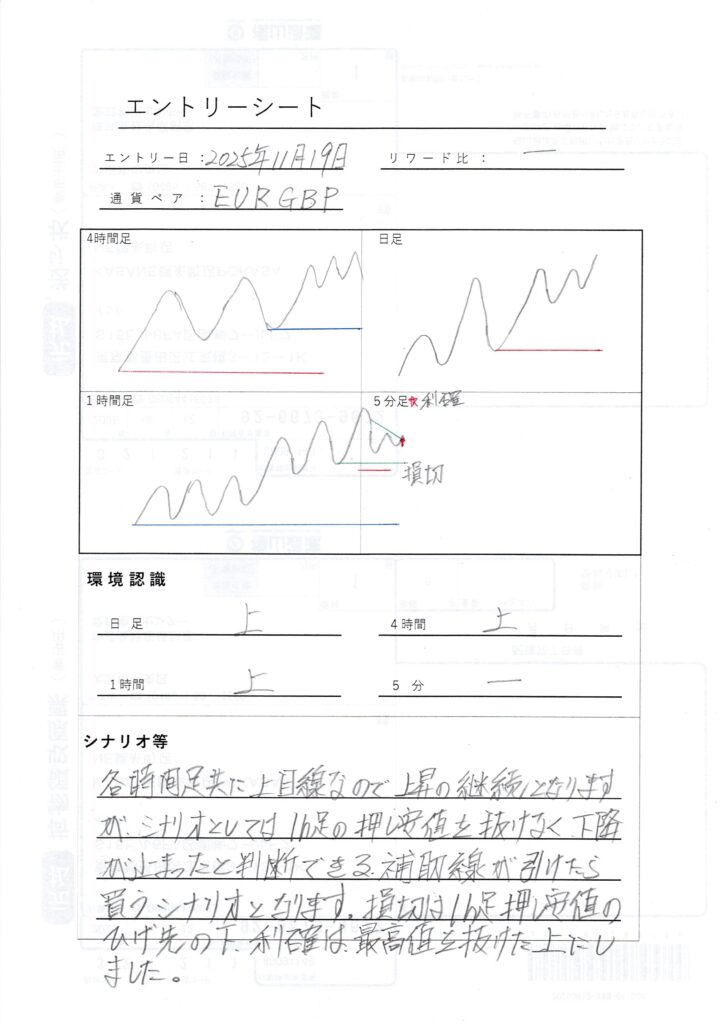 エントリーシート
エントリー日:2025年11月19日
リワード比: ー
通貨ペア : EURGBP
4時間足
日足
1時間足
5分足
利確
損切
環境認識
日足 上
4時間 上
1時間 上
5分 ー
シナリオ等
各時間足共に上目線なので上昇の継続になります
が、シナリオとしては1h足の押し安値を抜けなく、下降
が止まったと判断できる、補助線が引けたら
買うシナリオとなります。損切は1h足押し安値の
ひげ先の下、利確は、最高値を抜けた上にし
ました。